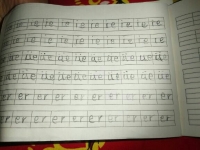 ie ie ie ie ie ie ie ie ie ie
ie ie ie ie ie ie ie ie ie ie
üe üe üe üe üe üe üe üe üe
üe üe üe üe üe üe üe üe üe
er er er er er er er er
er er er er er er er er